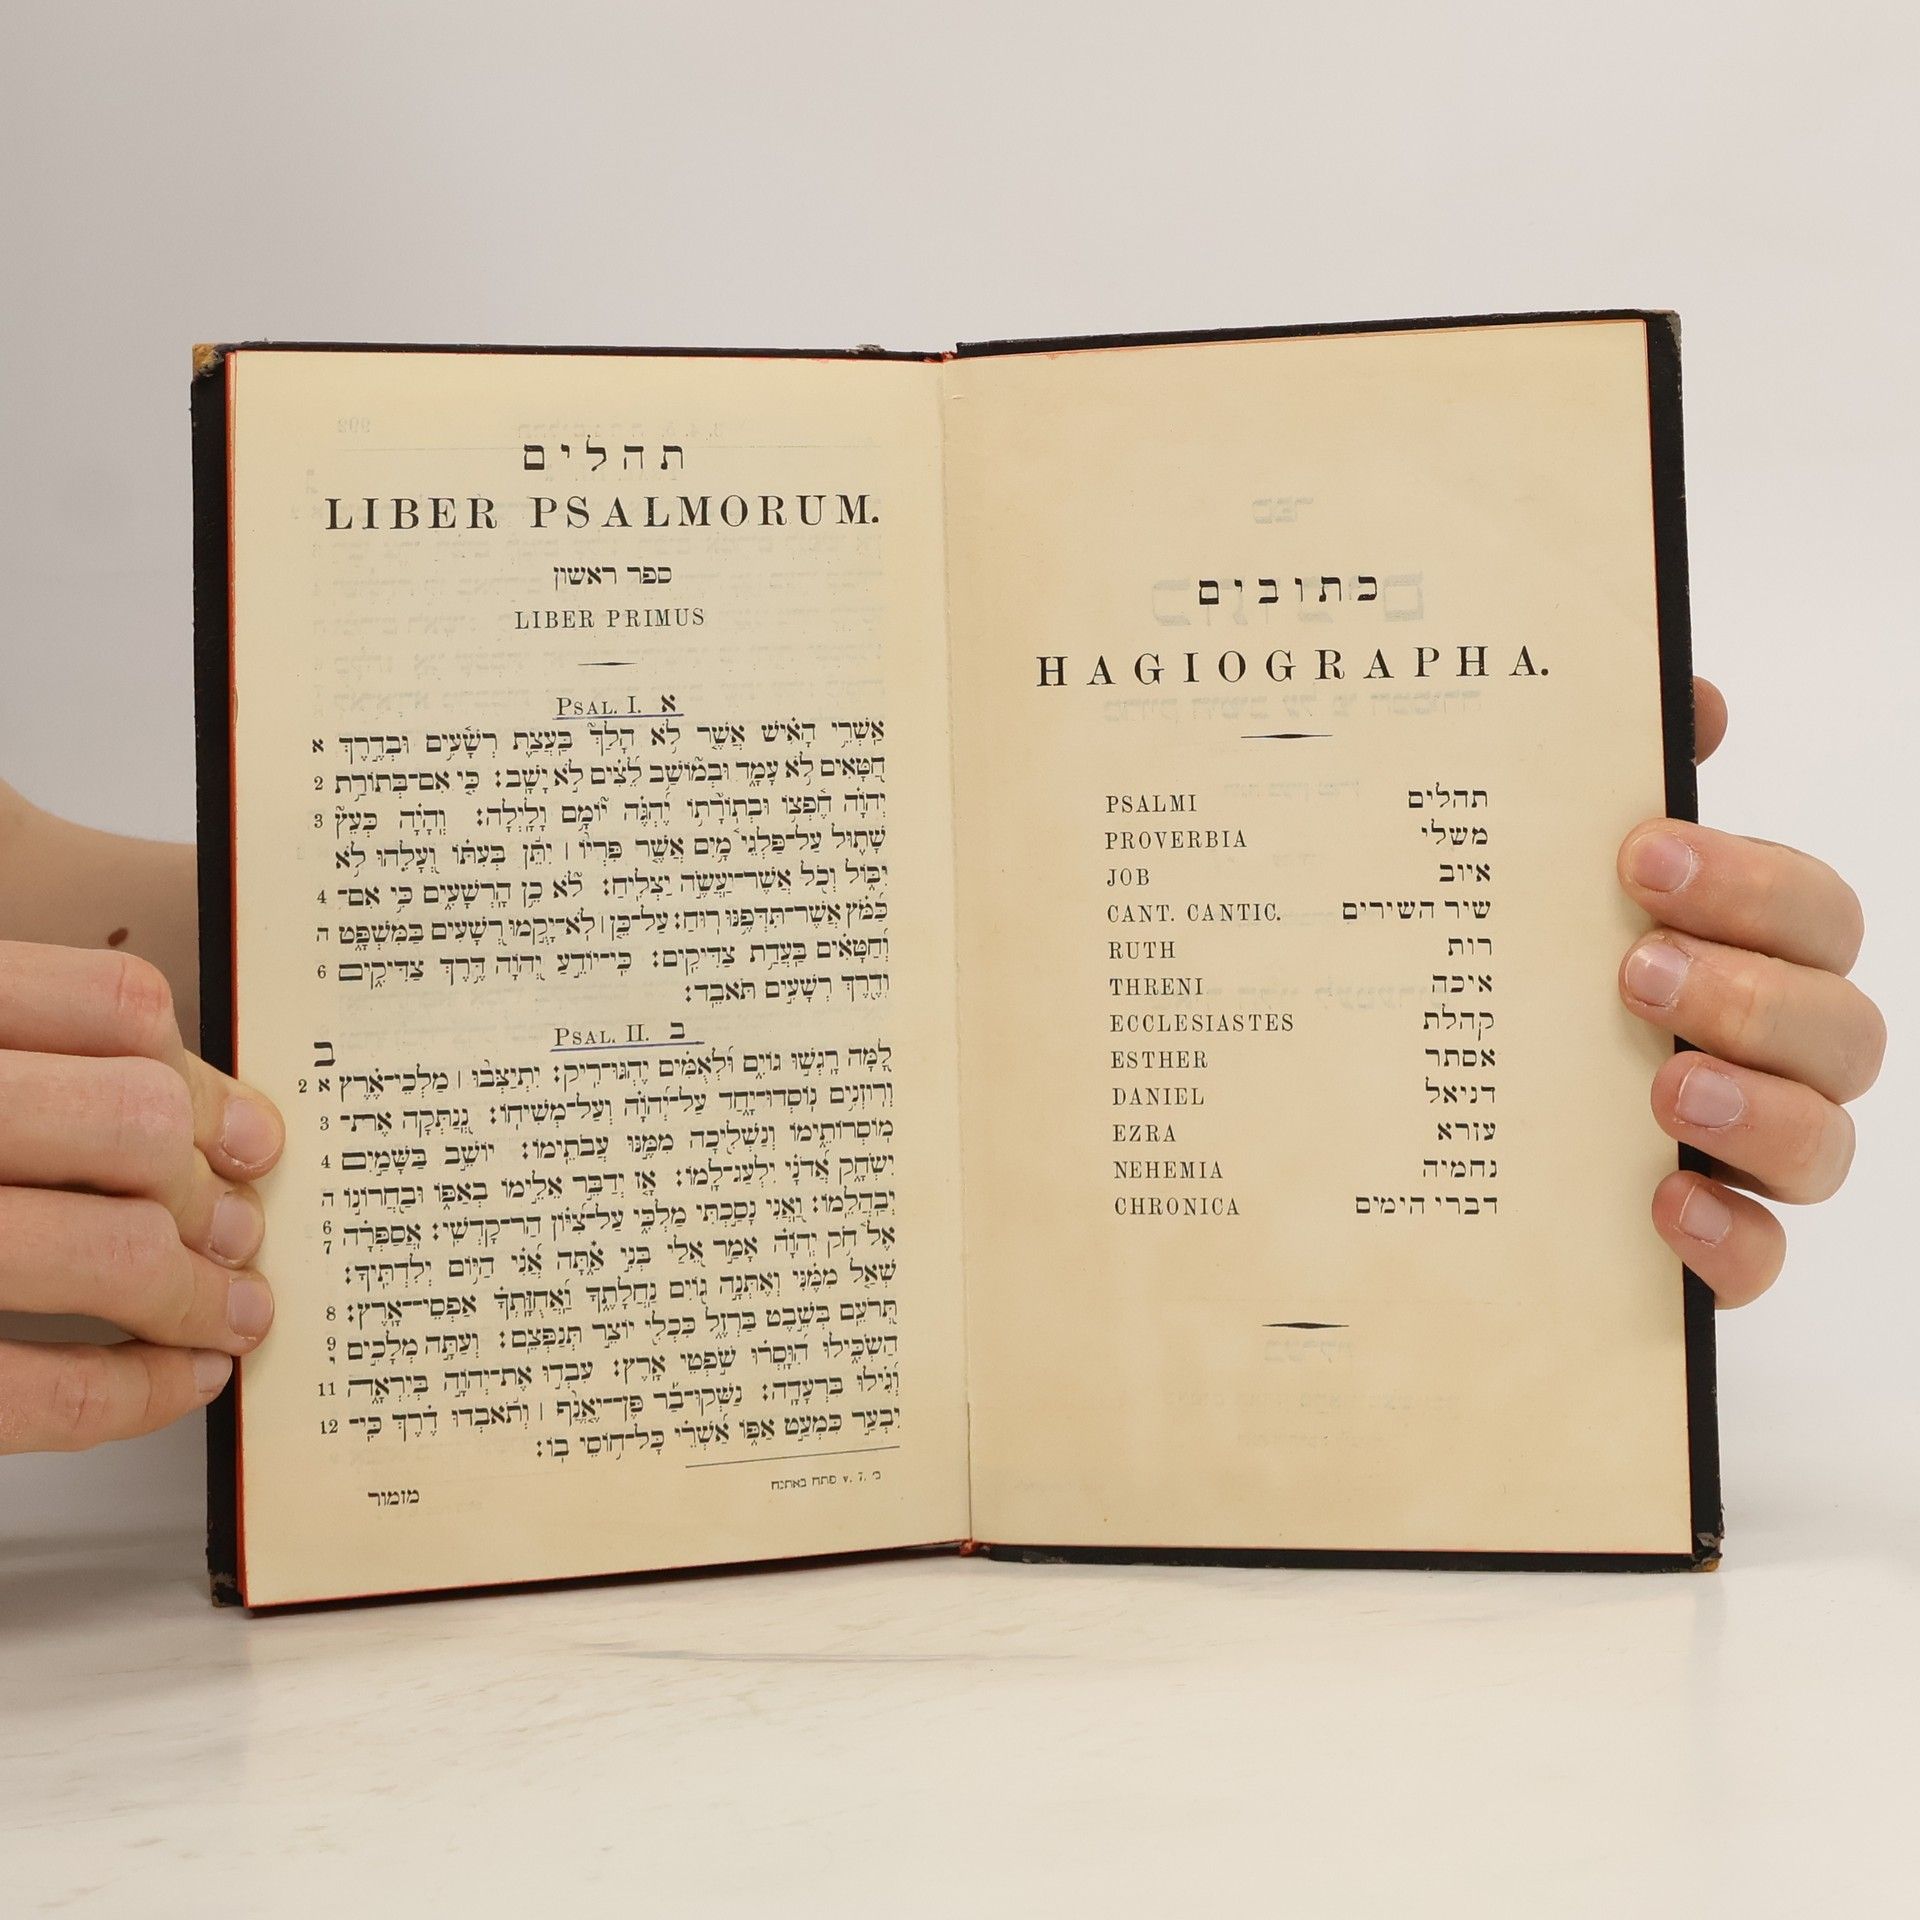 כתובים
HAGIOGRAPHA.
PSALMI תהלים
PROVERBIA משלי
JOB איוב
CANT. CANTIC. שיר השירים
RUTH רות
THRENI איכה
ECCLESIASTES קהלת
ESTHER אסתר
DANIEL דניאל
EZRA עזרא
NEHEMIA נחמיה
CHRONICA דברי הימים
תהלים
LIBER PSALMORUM.
ספר ראשון
LIBER PRIMUS
PSAL. I. א
אַשְׁרֵי הָאִישׁ אֲשֶׁר לֹא הָלַךְ בַּעֲצַת רְשָׁעִים וּבְדֶרֶךְ א
חַטָּאִים לֹא עָמָד וּבְמוֹשַׁב לֵצִים לֹא יָשָׁב׃ כִּי אִם־בְּתוֹרַת 2
יְהוָה חֶפְצוֹ וּבְתוֹרָתוֹ יֶהְגֶּה יוֹמָם וָלָיְלָה׃ וְהָיָה כְּעֵץ 3
שָׁתוּל עַל־פַּלְגֵי מָיִם אֲשֶׁר פִּרְיוֹ ׀ יִתֵּן בְּעִתּוֹ וְעָלֵהוּ לֹא
יִבּוֹל וְכֹל אֲשֶׁר־יַעֲשֶׂה יַצְלִיחַ׃ לֹא כֵן הָרְשָׁעִים כִּי אִם־ 4
כַּמֹּץ אֲשֶׁר־תִּדְּפֶנּוּ רוּחַ׃ עַל־כֵּן ׀ לֹא־יָקֻמוּ רְשָׁעִים בַּמִּשְׁפָּט ה
וְחַטָּאִים בַּעֲדַת צַדִּיקִים׃ כִּי־יוֹדֵעַ יְהוָה דֶּרֶךְ צַדִּיקִים 6
וְדֶרֶךְ רְשָׁעִים תֹּאבֵד׃
PSAL. II. ב
ב
לָמָּה רָגְשׁוּ גוֹיִם וּלְאֻמִּים יֶהְגּוּ־רִיק׃ יִתְיַצְּבוּ ׀ מַלְכֵי־אֶרֶץ א 2
וְרוֹזְנִים נוֹסְדוּ־יָחַד עַל־יְהוָה וְעַל־מְשִׁיחוֹ׃ נְנַתְּקָה אֶת־ 3
מוֹסְרוֹתֵימוֹ וְנַשְׁלִיכָה מִמֶּנּוּ עֲבֹתֵימוֹ׃ יוֹשֵׁב בַּשָּׁמַיִם 4
יִשְׂחָק אֲדֹנָי יִלְעַג־לָמוֹ׃ אָז יְדַבֵּר אֵלֵימוֹ בְאַפּוֹ וּבַחֲרוֹנוֹ ה
יְבַהֲלֵמוֹ׃ וַאֲנִי נָסַכְתִּי מַלְכִּי עַל־צִיּוֹן הַר־קָדְשִׁי׃ אֲסַפְּרָה 6 7
אֶל חֹק יְהוָה אָמַר אֵלַי בְּנִי אַתָּה אֲנִי הַיּוֹם יְלִדְתִּיךָ׃
שְׁאַל מִמֶּנִּי וְאֶתְּנָה גוֹיִם נַחֲלָתֶךָ וַאֲחֻזָּתְךָ אַפְסֵי־אָרֶץ׃ 8
תְּרֹעֵם בְּשֵׁבֶט בַּרְזֶל כִּכְלִי יוֹצֵר תְּנַפְּצֵם׃ וְעַתָּה מְלָכִים 9 י
הַשְׂכִּילוּ הִוָּסְרוּ שֹׁפְטֵי אָרֶץ׃ עִבְדוּ אֶת־יְהוָה בְּיִרְאָה 11
וְגִילוּ בִּרְעָדָה׃ נַשְּׁקוּ־בַר פֶּן־יֶאֱנַף ׀ וְתֹאבְדוּ דֶרֶךְ כִּי־ 12
יִבְעַר כִּמְעַט אַפּוֹ אַשְׁרֵי כָּל־חוֹסֵי בוֹ׃
ב׳ v. 7. פתח באתנח
מזמור